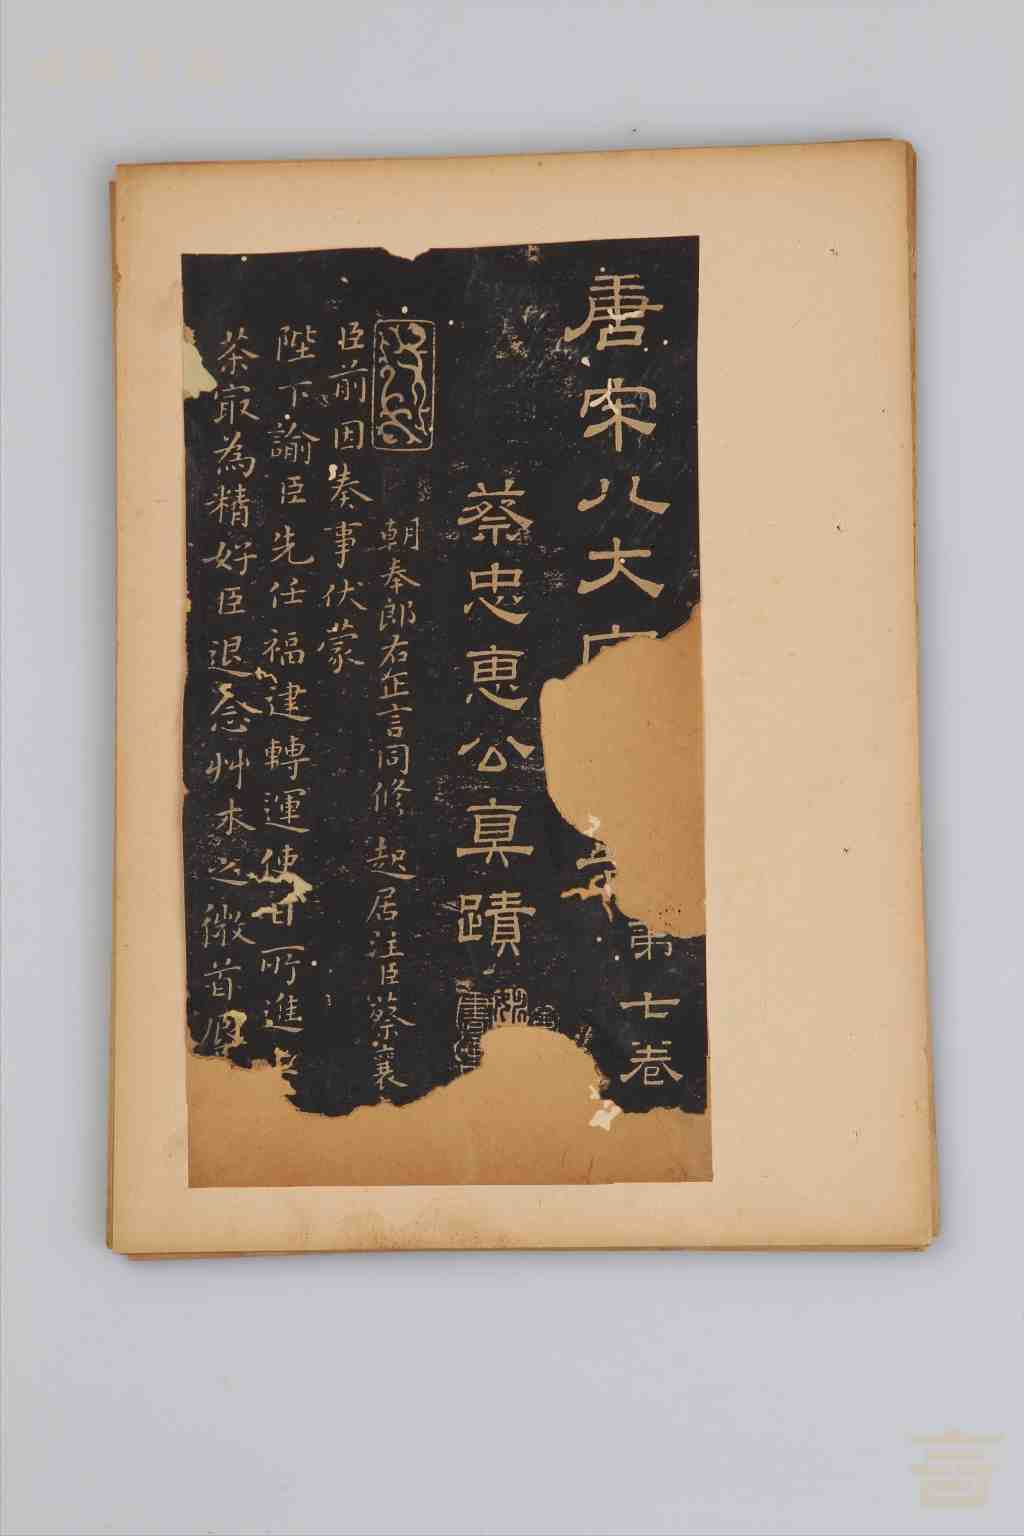 唐宋八大
第七卷
蔡忠惠公真蹟
朝奉郎右正言同修起居注臣蔡襄
臣前因奏事伏蒙
陛下諭臣先任福建轉運使日所進上
茶㝡為精好臣退念艸木之微首辱